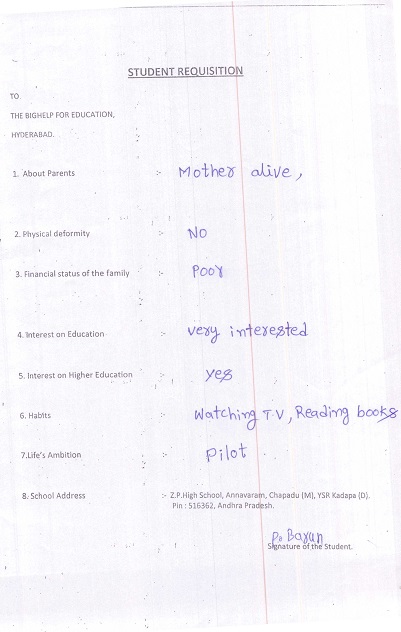 STUDENT REQUISITION
TO
THE BIGHELP FOR EDUCATION,
HYDERABAD.
1. About Parents :- Mother alive,
2. Physical deformity :- NO
3. Financial status of the family :- Poor
4. Interest on Education :- very interested
5. Interest on Higher Education :- yes
6. Habits :- Watching T.V, Reading books
7.Life's Ambition :- Pilot
8. School Address :- Z.P.High School, Annavaram, Chapadu (M), YSR Kadapa (D).
Pin : 516362, Andhra Pradesh.
P. Barun
Signature of the Student.